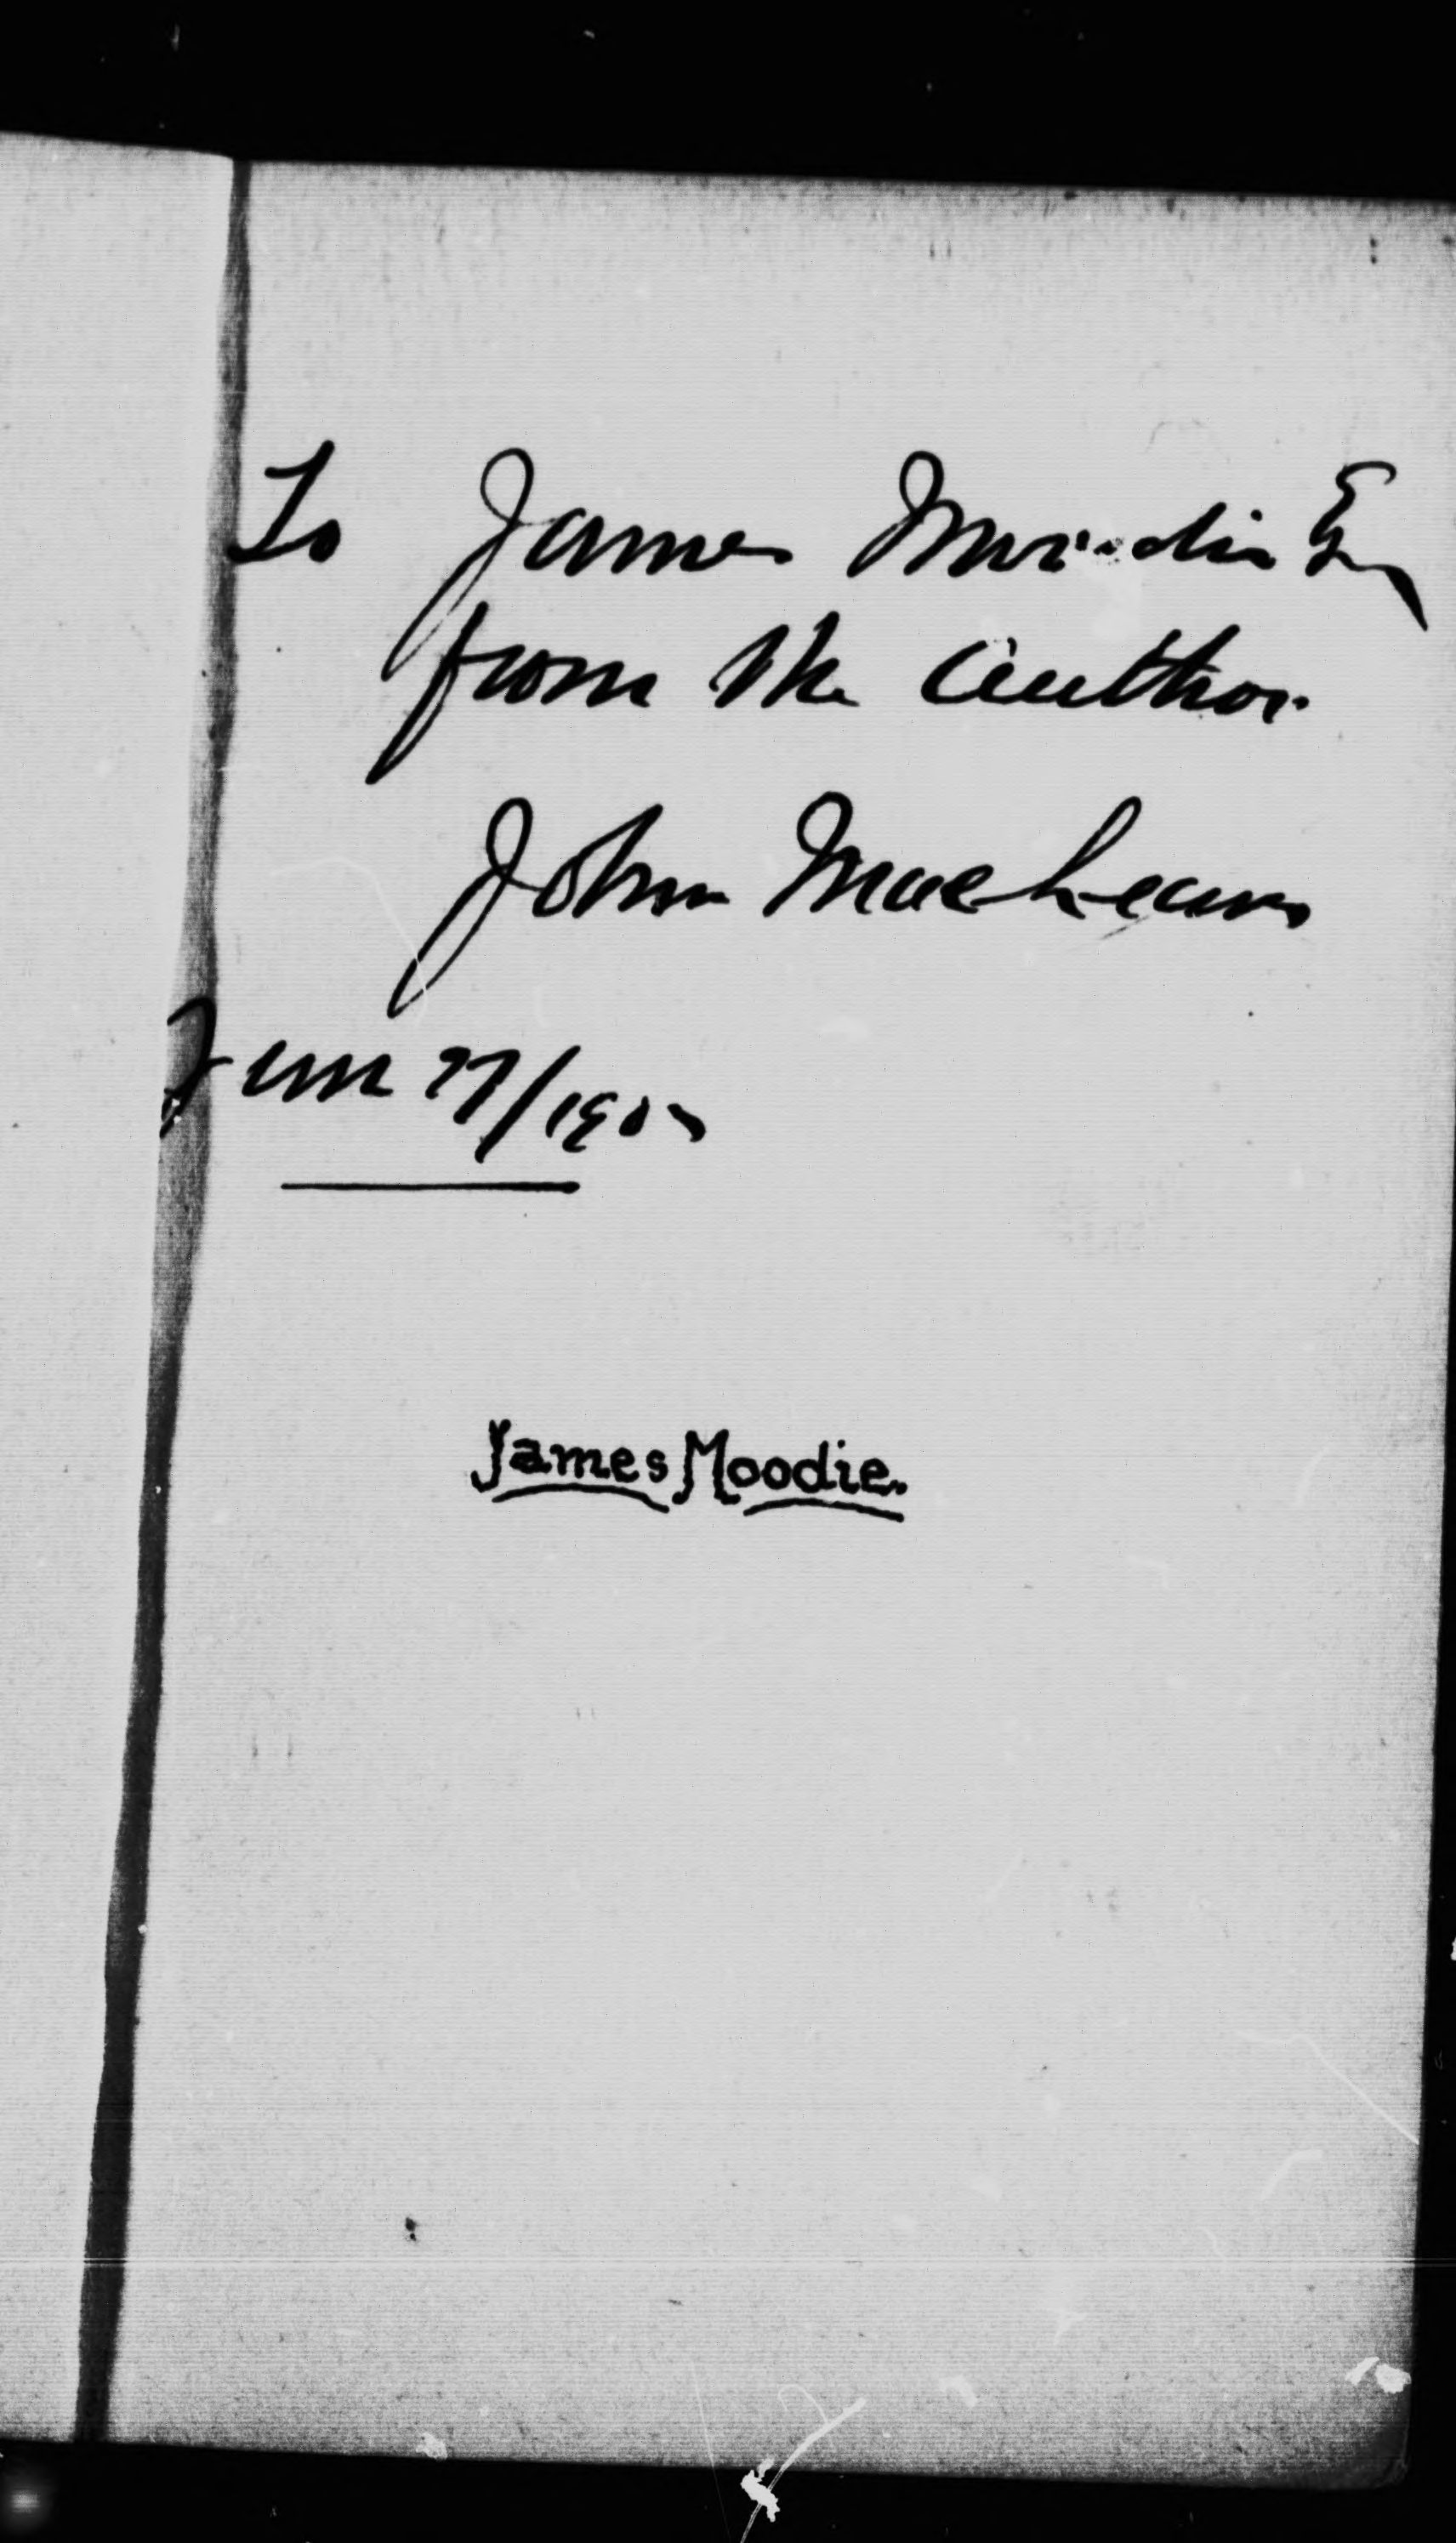 To James Moodie Esq
from the Author
John MacLean
June 27/190
James Moodie.